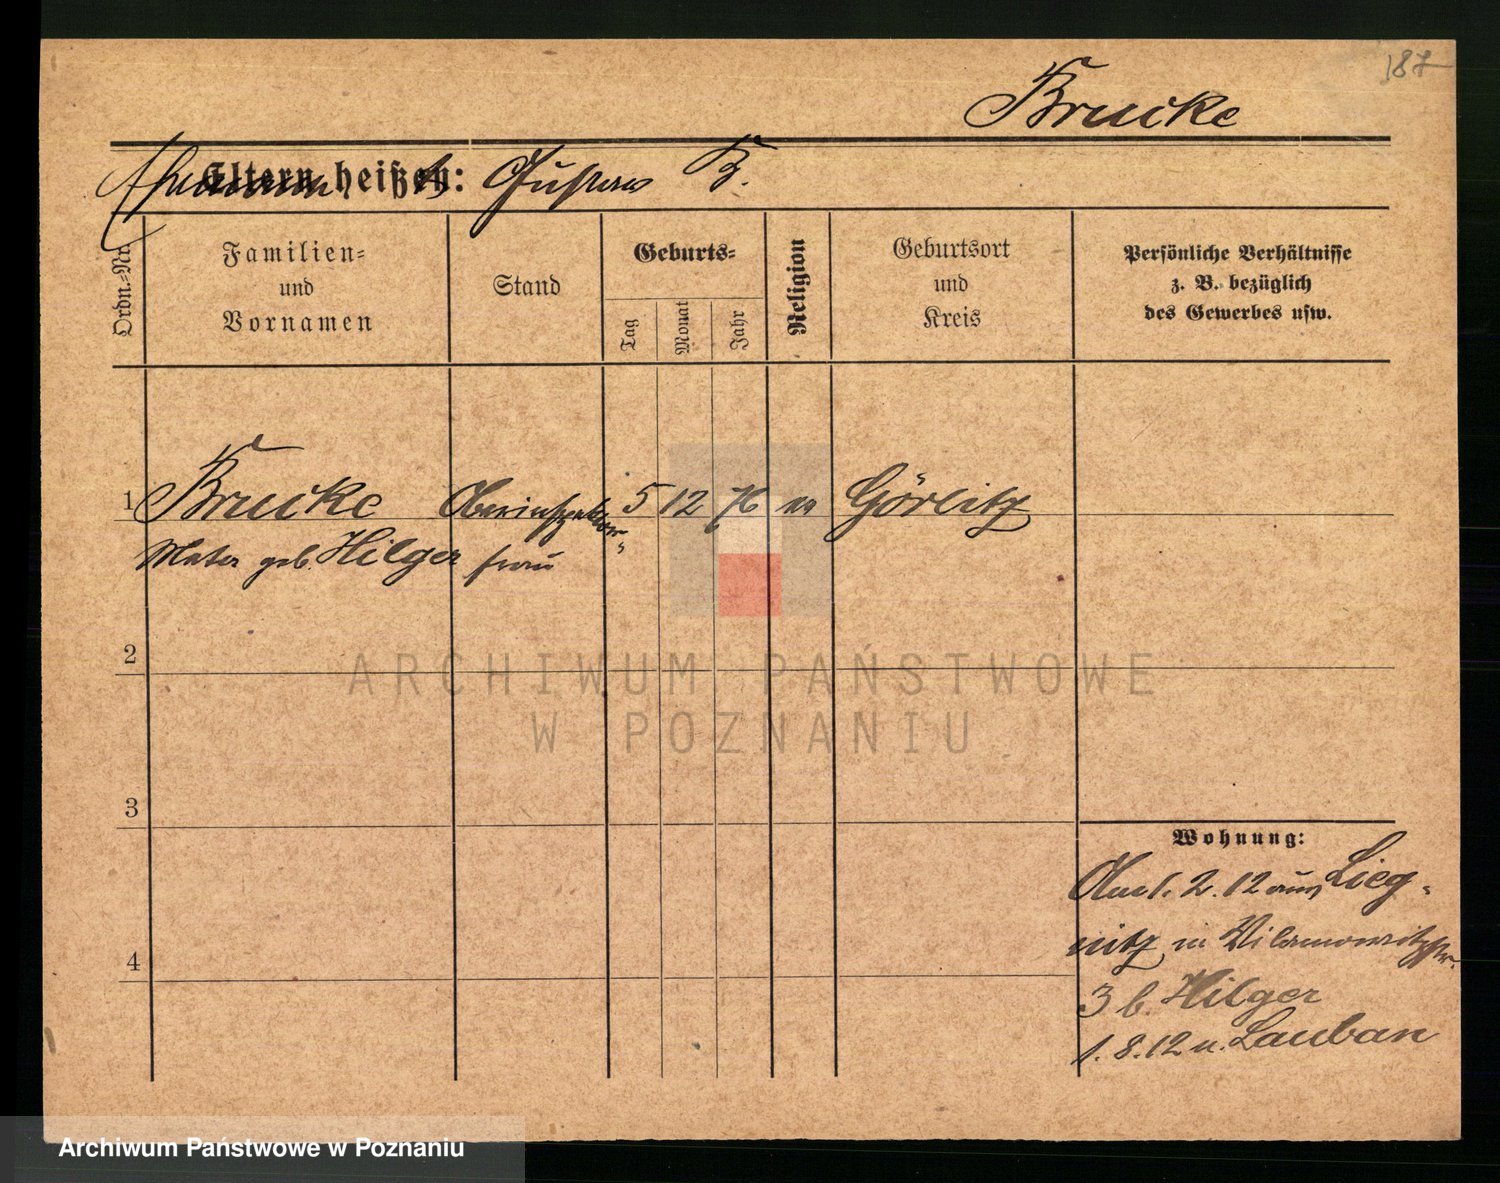 187
Brucke
Eltern heißen:
Ehemann h. Gustav B.
Ordn.-Nr.
Familien-
und
Vornamen
Stand
Geburts-
Tag
Monat
Jahr
Religion
Geburtsort
und
Kreis
Persönliche Verhältnisse
z. B. bezüglich
des Gewerbes usw.
1 Brucke Oberinspektor- 5 12 76 ev Görlitz
geb. Hilger frau
2
3
4
Wohnung:
2. 12 aus Lieg-
nitz in Wilamowitzstr.
3 b. Hilger
1. 8. 12 n. Lauban
ARCHIWUM PAŃSTWOWE
W POZNANIU
Archiwum Państwowe w Poznaniu